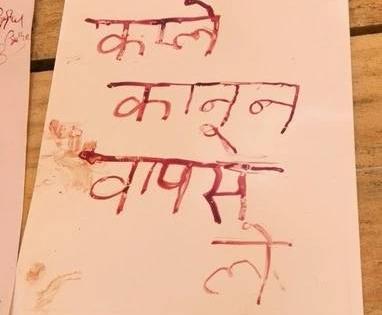 काले
कानून
वापस
ले